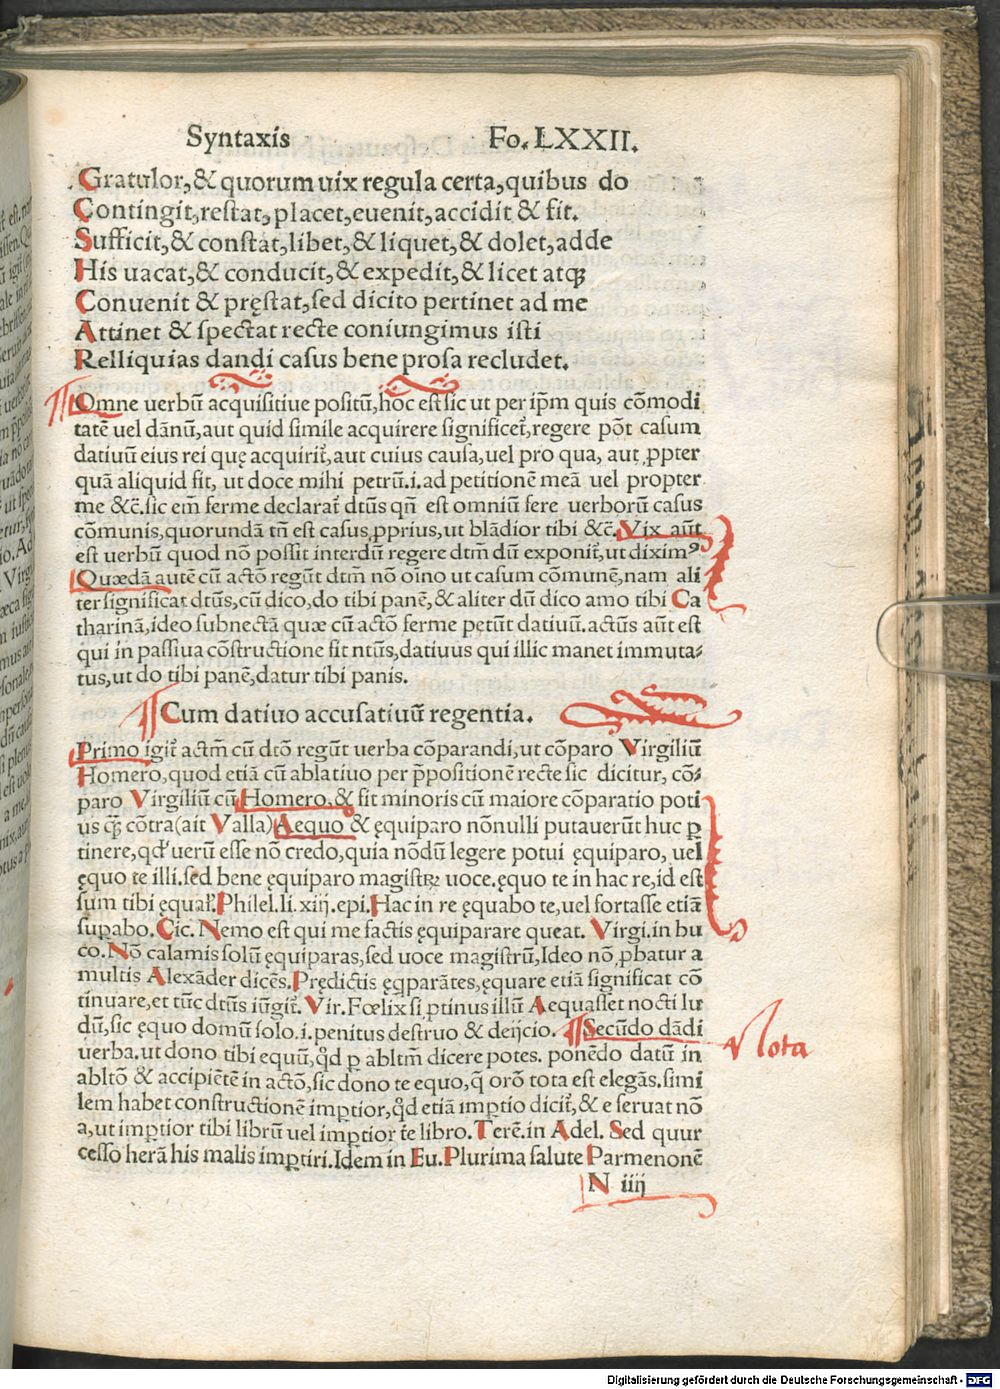 Syntaxis Fo. LXXII.
Gratulor, & quorum uix regula certa, quibus do
Contingit, restat, placet, euenit, accidit & fit.
Sufficit, & constat, libet, & liquet, & dolet, adde
His uacat, & conducit, & expedit, & licet atqꝫ
Conuenit & pręstat, sed dicito pertinet ad me
Attinet & spectat recte coniungimus isti
Relliquias dandi casus bene prosa recludet.
Omne uerbū acquisitiue positū, hoc est sic ut per ip̄m quis cōmodi
tatē uel dānū, aut quid simile acquirere significet᷑, regere pōt casum
datiuū eius rei quę acquirit᷑, aut cuius causa, uel pro qua, aut ꝓpter
quā aliquid fit, ut doce mihi petrū .i. ad petitionē meā uel propter
me &c̄. sic em̄ ferme declarat᷑ dt̄us qn̄ est omniū fere uerborū casus
cōmunis, quorundā tn̄ est casus ꝓprius, ut blādior tibi &c̄. Vix aūt
est uerbū quod nō possit interdū regere dtm̄ dū exponit᷑, ut diximꝰ
Quædā autē cū actō regūt dtm̄ nō oīno ut casum cōmunē, nam ali
ter significat dt̄us, cū dico, do tibi panē, & aliter dū dico amo tibi Ca
tharinā, ideo subnectā quæ cū actō ferme petūt datiuū. actūs aūt est
qui in passiua cōstructione fit nt̄us, datiuus qui illic manet immuta⸗
tus, ut do tibi panē, datur tibi panis.
¶ Cum datiuo accusatiuū regentia.
Primo igit᷑ actm̄ cū dtō regūt uerba cōparandi, ut cōparo Virgiliū
Homero, quod etiā cū ablatiuo per p̄positionē recte sic dicitur, cō⸗
paro Virgiliū cū Homero, & fit minoris cū maiore cōparatio poti
us q̄ꝫ cōtra (ait Valla) Aequo & ęquiparo nōnulli putauerūt huc ꝑ
tinere, qd̓ uerū esse nō credo, quia nōdū legere potui ęquiparo, uel
ęquo te illi. sed bene ęquiparo magistꝝ uoce. ęquo te in hac re, id est
sum tibi ęqual᷑. Philel. li. xiij. epi. Hac in re ęquabo te, uel fortasse etiā
supabo. Cic. Nemo est qui me factis ęquiparare queat. Virgi. in bu
co. Nō calamis solū ęquiparas, sed uoce magistrū, Ideo nō ꝓbatur a
multis Alexāder dicēs. Prędictis eqꝑarātes, equare etiā significat cō
tinuare, et tūc dt̄us iūgit᷑. Vir. Fœlix si ꝓtinus illū Aequasset nocti lu
dū, sic ęquo domū solo .i. penitus destruo & deijcio. ¶ Secūdo dādi
uerba. ut dono tibi equū, qd̓ ꝑ abltm̄ dicere potes. ponēdo datū in
abltō & accipiētē in actō, sic dono te equo, q̄ orō tota est elegās. simi
lem habet constructionē imꝑtior, qd̓ etiā imꝑtio dicit᷑, & e seruat nō
a, ut imꝑtior tibi librū uel imꝑtior te libro. Terē. in Adel. Sed quur
cesso herā his malis imꝑtiri. Idem in Eu. Plurima salute Parmenonē
N iiij
Nota
Digitalisierung gefördert durch die Deutsche Forschungsgemeinschaft - DFG